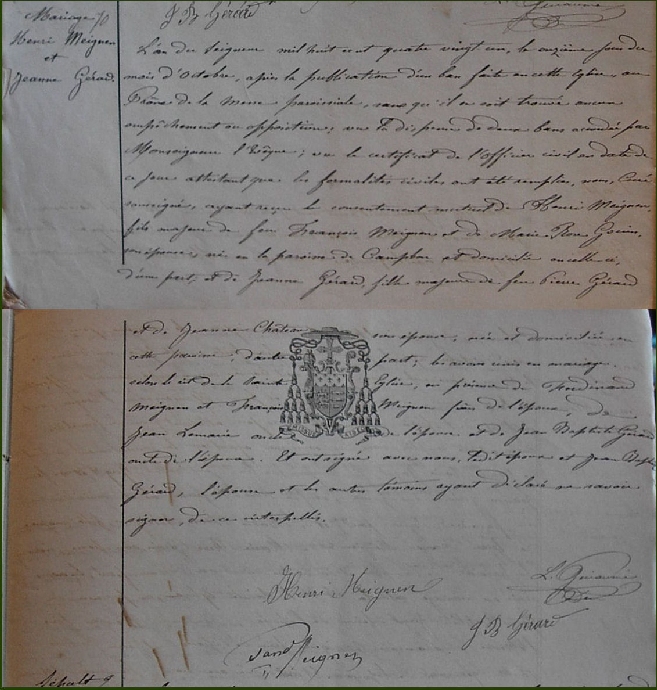 J B Gérard
Mariage
Henri Meignen
et
Jeanne Gérard.
L'an du Seigneur mil huit cent quatre vingt un, le onzième jour du
mois d'Octobre, après la publication d'un ban faite en cette église, au
Prône de la messe paroissiale, sans qu'il se soit trouvé aucun
empêchement ou opposition; vu la dispense de deux bans accordée par
Monseigneur l'Evêque; vu le certificat de l'Officier civil en date de
ce jour attestant que les formalités civiles ont été remplies, nous, Curé
soussigné, ayant reçu le consentement mutuel de Henri Meignen,
fils majeur de feu François Meignen et de Marie Rose
son épouse, né en la paroisse de et domicilié en celle-ci,
d'une part, et de Jeanne Gérard, fille majeure de feu Pierre Gérard
et de Jeanne son épouse, née et domiciliée en
cette paroisse, d'autre part; les avons unis en mariage
selon le rit de la Sainte Eglise, en présence de Ferdinand
Meignen et François Meignen frères de l'époux, de
Jean Lemarie oncle de l'épouse et de Jean Baptiste Gérard
oncle de l'épouse. Et ont signé avec nous, l'époux et Jean Baptiste
Gérard, l'épouse et les autres témoins ayant déclaré ne savoir
signer, de ce interpellés.
Henri Meignen
J B Gérard
Meignen